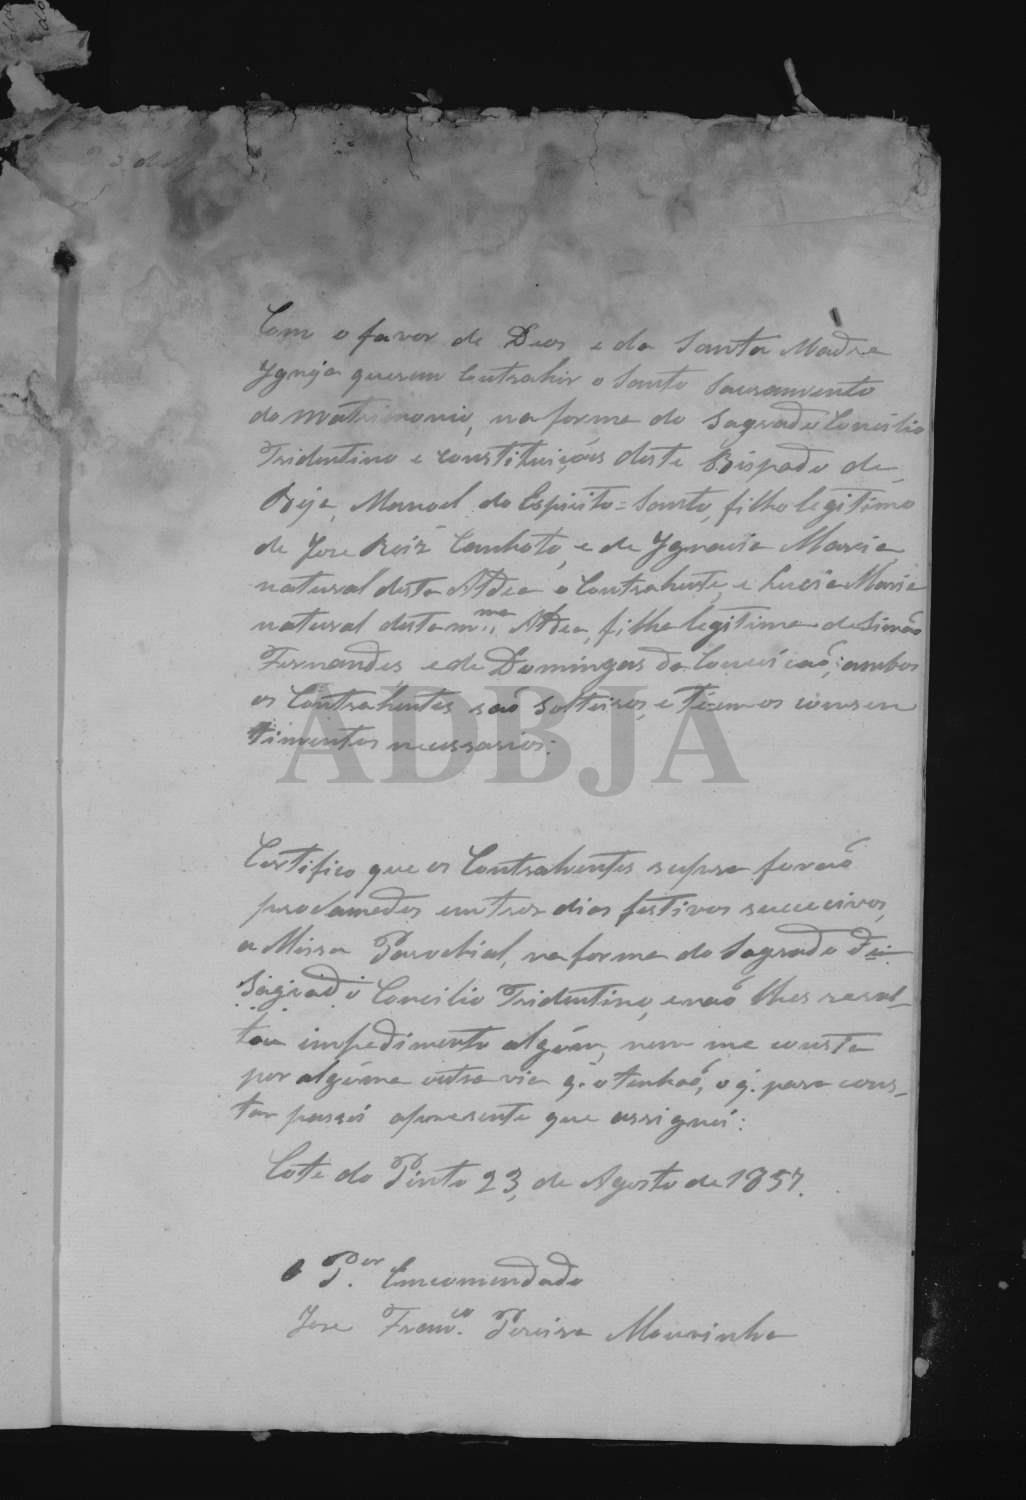 Com o favor de Deos e da Santa Madre
Ygreja querem Contrahir o Santo Sacramento
do Matrimonio, na forma do Sagrado Concilio
Tridentino e constituições deste Bispado de
Beja, Manoel do Espirito=Santo, filho legitimo
de Jose Roiz Canhoto, e de Ygnacia Maria
natural desta Aldea o Contrahente, e Luzia Maria
natural desta m.ma Aldea, filha legitima de Simão
Fernandes, e de Domingas da Conceicaó; ambos
os Contrahentes saó solteiros, e tiem os consen
timentos necessarios:
ADBJA
Certifico que os Contrahentes supra foraó
proclamedos em tres dias festivos succecivos,
a Missa Parochial, na forma do Sagrado
Sagrado Concilio Tridentino, e naó lhes resul-
tou impedimento algúm, nem me consta
por algúma outra via q. o tenhaó, o q. para cons-
tar passei apresente que assignei:
Cote do Pinto 23, de Agosto de 1857.
O P.or Emcomendado
Jose Fran.co Pereira Mourinha